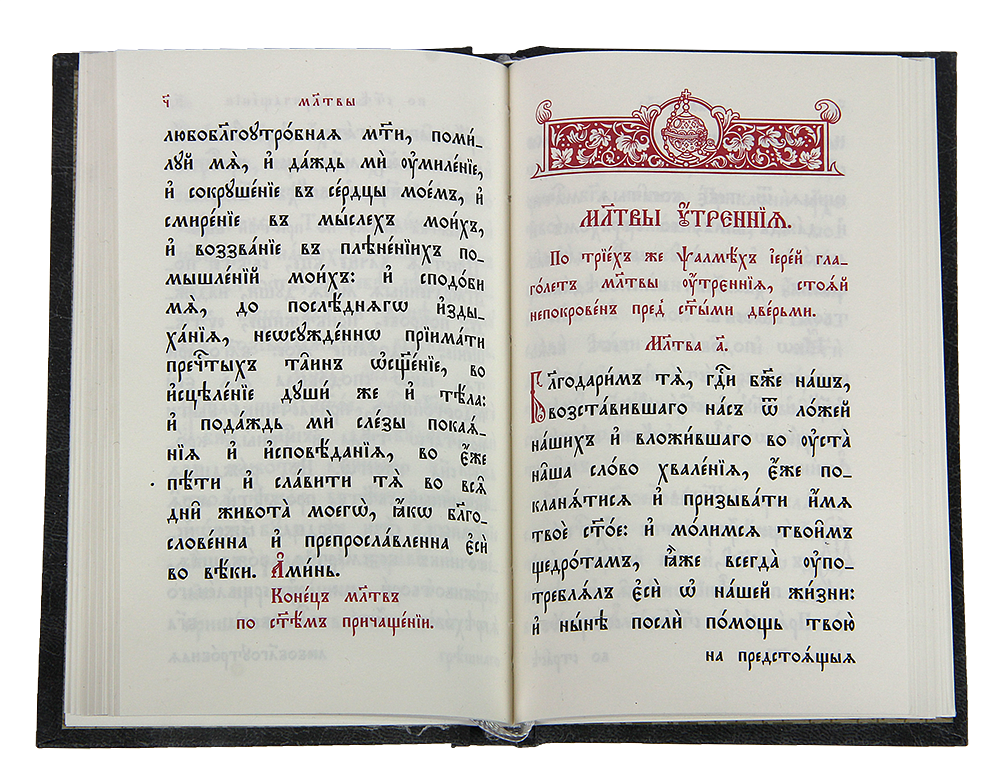 ч҃ мл҃твы
любобл҃гоꙋтро́бная мт҃и, поми́-
лꙋй мѧ̀, и҆ да́ждь мѝ ᲂу҆миле́нїе,
и҆ сокрꙋше́нїе въ се́рдцы мое́мъ, и҆
смире́нїе въ мы́слехъ мои́хъ,
и҆ воззва́нїе въ плѣне́нїихъ по-
мышле́нїй мои́хъ: и҆ сподо́би
мѧ̀, до послѣ́днѧгѡ и҆зды-
ха́нїѧ, неѡсꙋжде́ннѡ прїима́ти
пречⷭ҇тыхъ та̑инъ ѡ҆сщ҃е́нїе, во
и҆сцѣле́нїе дꙋшѝ же и҆ тѣ́ла:
и҆ пода́ждь мѝ сле́зы покаѧ́-
нїѧ и҆ и҆сповѣ́данїѧ, во є҆́же
пѣ́ти и҆ сла́вити тѧ̀ во всѧ̑
дни҄ живота̀ моегѡ̀, ꙗ҆́кѡ бл҃го-
слове́нна и҆ препросла́вленна є҆сѝ
во вѣ́ки. А҆ми́нь.
Коне́цъ мл҃твъ
по ст҃ѣ́мъ причаще́нїи.
МЛ҃ТВЫ ᲂУ҆́ТРЕННЇѦ.
По трїе́хъ же ѱалмѣ́хъ і҆ере́й гла-
го́летъ мл҃твы ᲂу҆́треннїѧ, стоѧ́й
непокрове́нъ пред̾ ст҃ы́ми две́рьми.
Мл҃тва а҃.
Бл҃годари́мъ тѧ̀, гдⷭ҇и бж҃е на́шъ,
возста́вившаго на́съ ѿ ло́жей
на́шихъ и҆ вложи́вшаго во ᲂу҆ста̀
на̑ша сло́во хвале́нїѧ, є҆́же по-
кланѧ́тисѧ и҆ призыва́ти и҆́мѧ
твоѐ ст҃о́е: и҆ мо́лимсѧ твои̑мъ
щедро́тамъ, ꙗ҆̀же всегда̀ ᲂу҆по-
треблѧ́лъ є҆сѝ ѡ҆ на́шей жи́зни:
и҆ ны́нѣ послѝ по́мощь твою̀
на предстоѧ́щыѧ